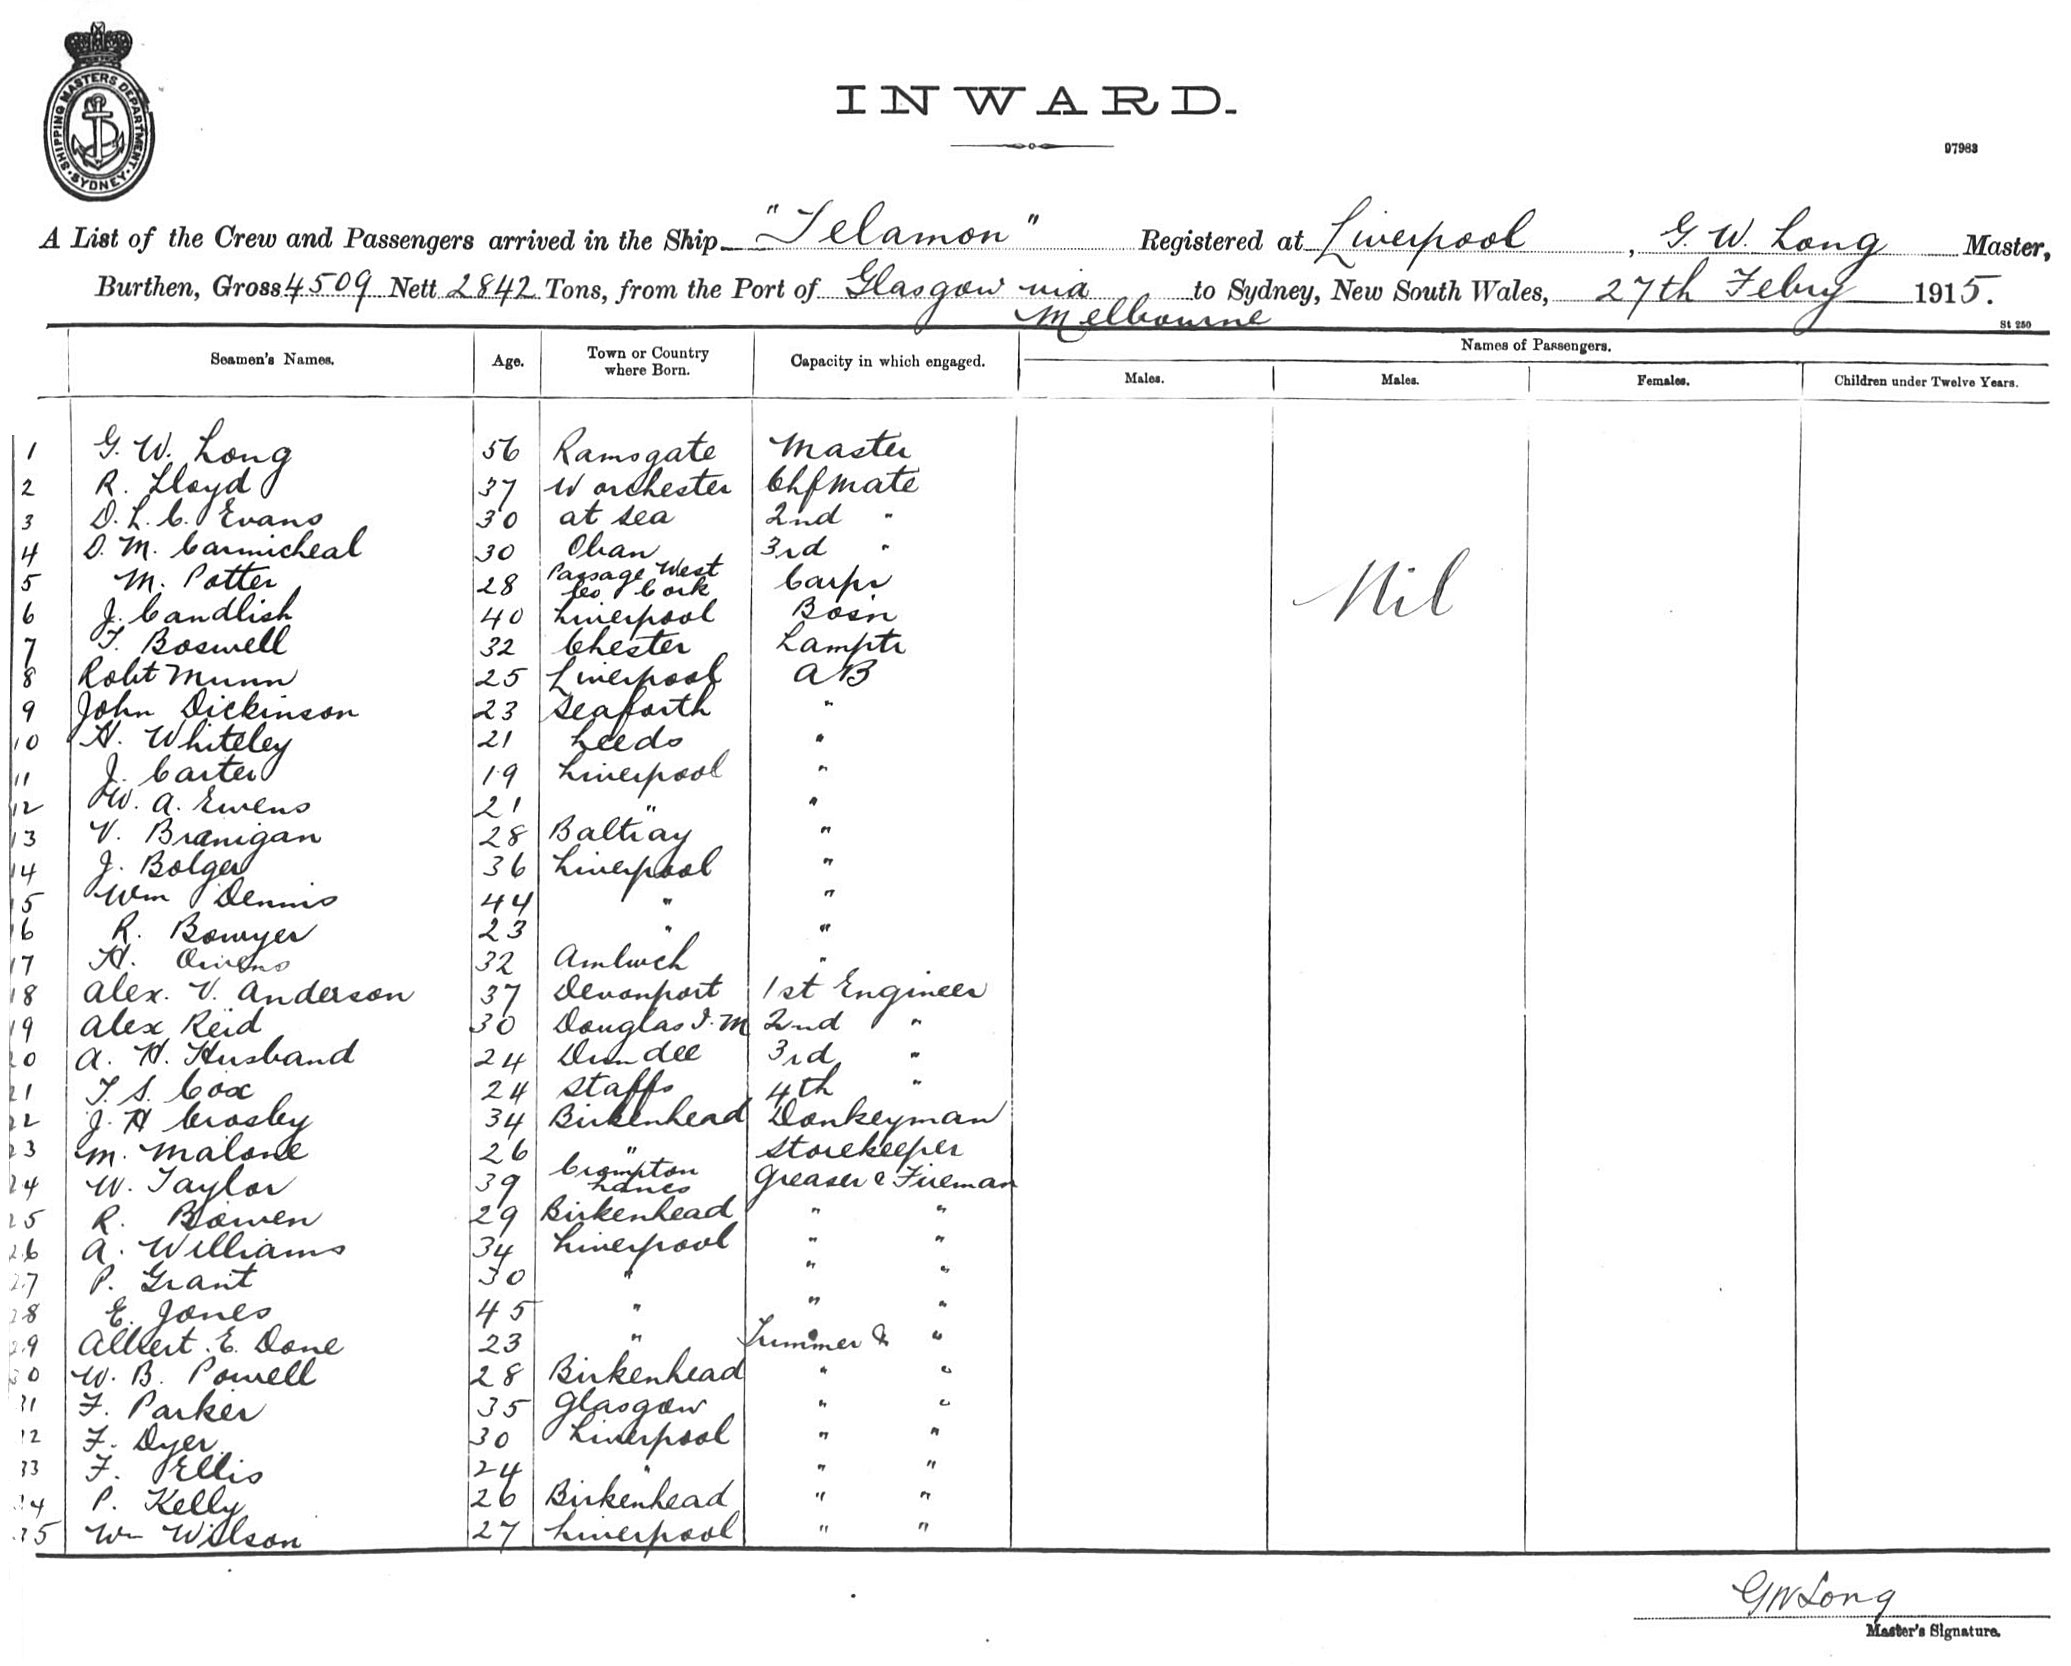 SHIPPING MASTERS DEPARTMENT · SYDNEY ·
INWARD.
97983
A List of the Crew and Passengers arrived in the Ship "Telamon" Registered at Liverpool, G. W. Long Master,
Burthen, Gross 4509 Nett 2842 Tons, from the Port of Glasgow via Melbourne to Sydney, New South Wales, 27th Febry 1915.
St 250
Seamen's Names. Age. Town or Country where Born. Capacity in which engaged. Names of Passengers.
Males. Males. Females. Children under Twelve Years.
1 G. W. Long 56 Ramsgate Master
2 R. Lloyd 37 Worchester Chf Mate
3 D. L. C. Evans 30 at sea 2nd "
4 D. M. Carmicheal 30 Oban 3rd "
5 M. Potter 28 Passage West Co Cork Carpr
Nil
6 J. Candlish 40 Liverpool Bosn
7 T. Boswell 32 Chester Lamptr
8 Robt Munn 25 Liverpool AB
9 John Dickinson 23 Seaforth "
10 H. Whiteley 21 Leeds "
11 J. Carter 19 Liverpool "
12 W. A. Ewens 21 " "
13 V. Branigan 28 Baltray "
14 J. Bolger 36 Liverpool "
15 Wm Dennis 44 " "
16 R. Bowyer 23 " "
17 H. Owens 32 Amlwch "
18 Alex. V. Anderson 37 Devonport 1st Engineer
19 Alex Reid 30 Douglas I.M 2nd "
20 A. H. Husband 24 Dundee 3rd "
21 T. S. Cox 24 Staffs 4th "
22 J. H Crosby 34 Birkenhead Donkeyman
23 M. Malone 26 " Storekeeper
24 W. Taylor 39 Crompton Lancs Greaser & Fireman
25 R. Bowen 29 Birkenhead " "
26 A. Williams 34 Liverpool " "
27 P. Grant 30 " " "
28 E. Jones 45 " " "
29 Albert. E. Done 23 " Trimmer & "
30 W. B. Powell 28 Birkenhead " "
31 F. Parker 35 Glasgow " "
32 F. Dyer 30 Liverpool " "
33 F. Ellis 24 " " "
34 P. Kelly 26 Birkenhead " "
35 Wm Wilson 27 Liverpool " "
GW Long
Master's Signature.